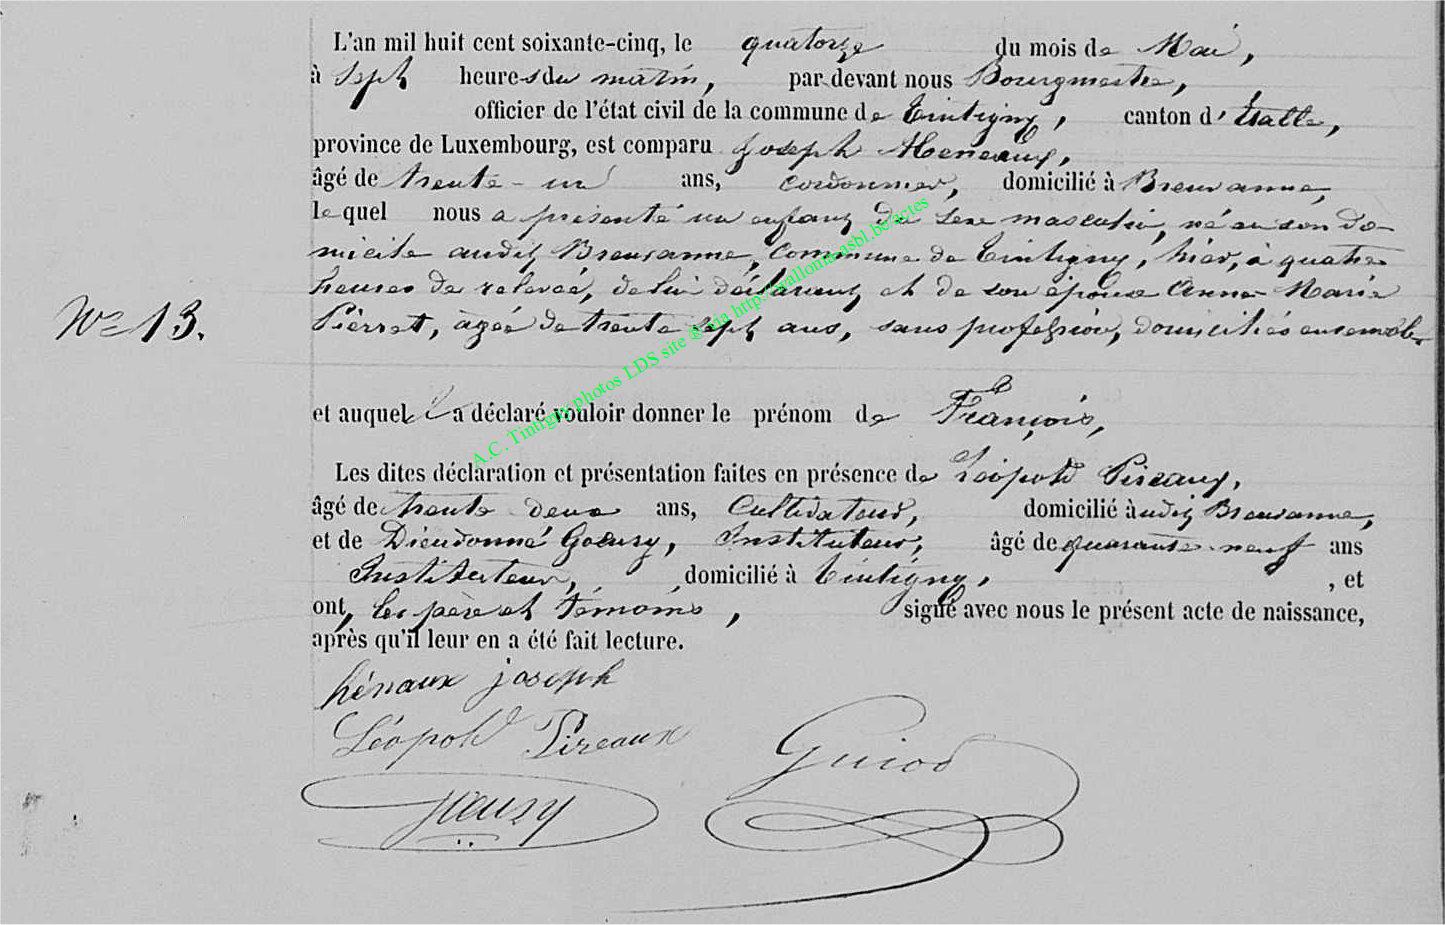 L'an mil huit cent soixante-cinq, le quatorze du mois de Mai,
à sept heures du matin, par devant nous Bourgmestre,
officier de l'état civil de la commune de Tintigny, canton d'Etalle,
province de Luxembourg, est comparu Joseph Heneaux,
âgé de trente-un ans, cordonnier, domicilié à Breuvanne,
lequel nous a présenté un enfant du sexe masculin, né en son do-
micile audit Breuvanne, commune de Tintigny, hier, à quatre
heures de relevée, de lui déclarant et de son épouse Anne-Marie
N° 13. Pierret, âgée de trente sept ans, sans profession, domiciliés ensemble
et auquel il a déclaré vouloir donner le prénom de François,
Les dites déclaration et présentation faites en présence de Léopold Pireaux,
âgé de trente deux ans, Cultivateur, domicilié audit Breuvanne,
et de Dieudonné Goeury, Instituteur, âgé de quarante-neuf ans
Instituteur, domicilié à Tintigny, , et
ont, les père et témoins, signé avec nous le présent acte de naissance,
après qu'il leur en a été fait lecture.
hénaux joseph
Léopold Pireaux
Guiod
Goeury
A.C. Tintigny photos LDS site @ via http://wallonia-asbl.be/actes